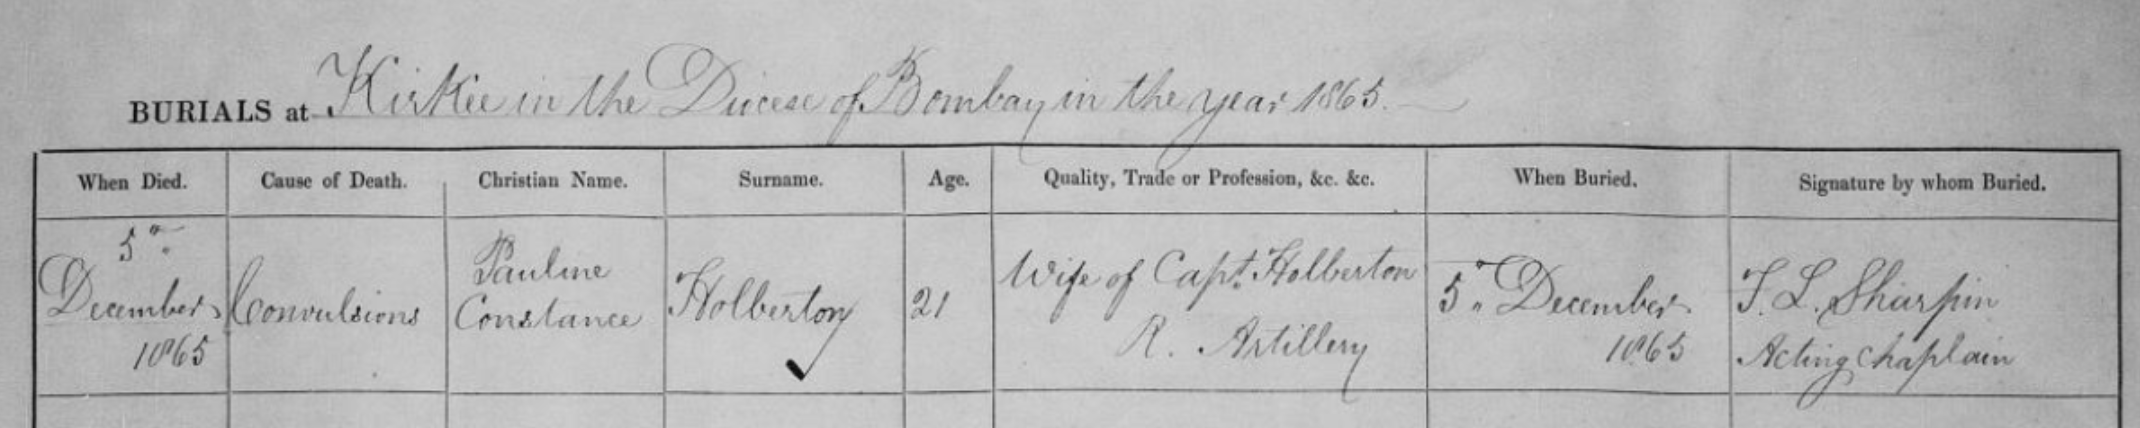 BURIALS at Kirkee in the Diocese of Bombay in the year 1865.
When Died. Cause of Death. Christian Name. Surname. Age. Quality, Trade or Profession, &c. &c. When Buried. Signature by whom Buried.
5th
December
1865
Convulsions
Pauline
Constance
Holberton
21
Wife of Capt. Holberton
R. Artillery
5th December
1865
F. L. Sharpin
Acting Chaplain